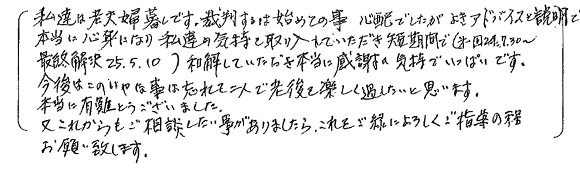 私達は老夫婦暮しです。裁判するは始めての事 心配でしたが よきアドバイスと説明で
本当に心身になり 私達の気持を取り入れていただき 短期間で(来国24.7.30〜
最終解決25.5.10)和解していただき本当に感謝の気持でいっぱいです。
今後はこのいやな事は忘れて二人で老後を楽しく過したいと思います。
本当に有難とうございました。
又これからもご相談したい事がありましたら、これをご縁によろしくご指導の程
お願い致します。